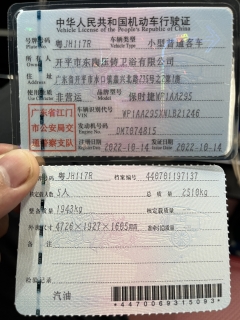 中华人民共和国机动车行驶证
Vehicle License of the People's Republic of China
号牌号码 粤JH117R 车辆类型 小型普通客车
Plate No. Vehicle Type
所有人 开平市东陶压铸卫浴有限公司
住址 广东省开平市水口镇
使用性质 非营运 品牌型号 保时捷WP1AA29S
广东省江门市公安局交通警察支队
车辆识别代号 WP1AA29SXNLB21246
VIN
发动机号码 DMT074815
注册日期 2022-10-14 发证日期 2022-10-14
号牌号码 粤JH117R 档案编号 440701197137
核定载人数 5人 总质量 2510kg
整备质量 1943kg 核定载质量
外廓尺寸
备注
检验记录
汽油
*4470069315093*